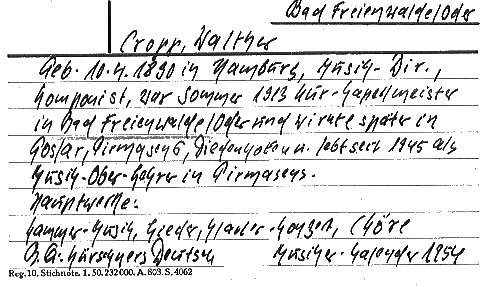 Bad Freienwalde/Oder
Cropp, Walther
Geb. 10.4.1890 in Hamburg, Musik-Dir.,
Komponist, war Sommer 1913 Kur-Kapellmeister
in Bad Freienwalde/Oder und wirkte später in
Goslar, Pirmasens, Diedenhofen u. lebt seit 1945 als
Musik-Ober-Lehrer in Pirmasens.
Hauptwerke:
Kammer-Musik, Lieder, Klavier-Konzert, Chöre
Kürschners Deutsch Musiker-Kalender 1954
Reg. 10. Stichnote. 1. 50. 232000. A. 803. S. 4062